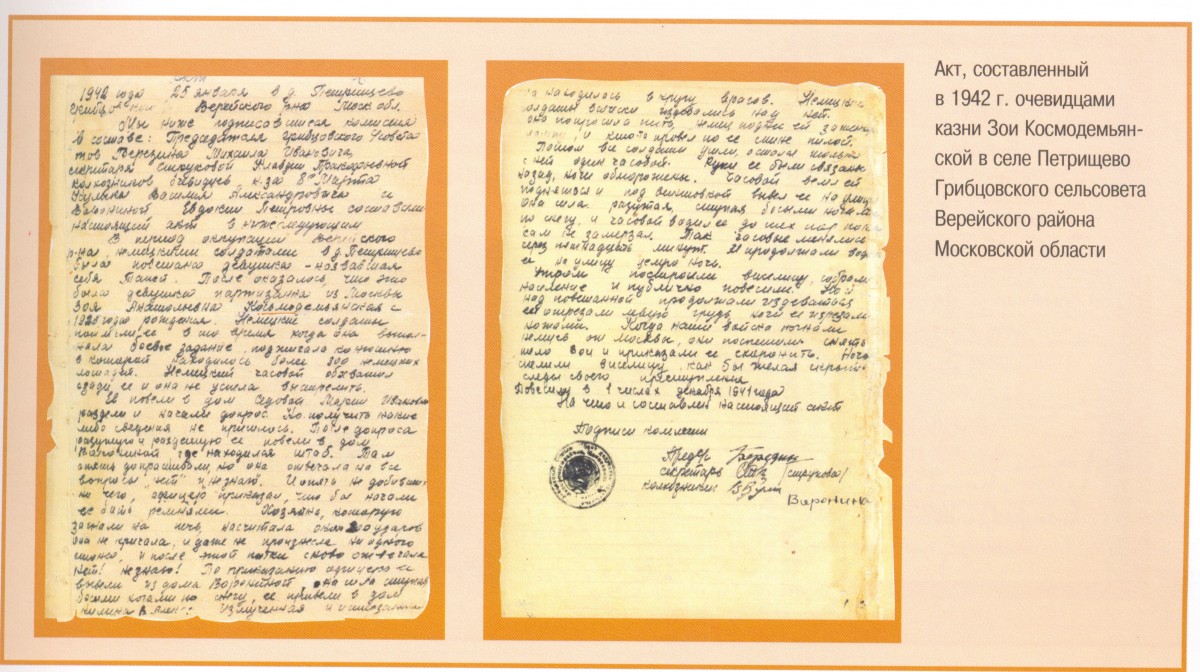 Акт
1942 года 25 января в д. Петрищево
Верейского р-на Моск. обл.
Мы ниже подписавшиеся комиссия
в составе: Председателя Грибцовского сельсове
тов Березина Михаила Ивановича,
секретаря Струковой Клавдии Прокофьевной
колхозников очевидцев к-за 8е Марта
Кулика Василия Александровича и
Ворониной Евдокии Петровны составили
настоящий акт в нижеследующим
В период оккупации Верейского
р-на, немецкими солдатами в д. Петрищево
была повешана девушка - назвавшая
себя Таней. После оказалось, что это
была девушка партизанка из Москвы
Зоя Анатольевна Космодемьянская с
года рождения. Немецкие солдаты
поймали ее в то время когда она выпол-
няла боевое задание, поджигала конюшню
в которой находилось более 300 немецких
лошадей. Немецкий часовой обхватил
сзади ее и она не успела выстрелить.
Её повели в дом Седовой Марии Ивановны
раздели и начали допрос. Но получить каких
либо сведения не пришлось. После допроса
разутую и раздетую ее повели в дом
Ворониной где находился штаб. Там
опять допрашивали, но она отвечала на все
вопросы "нет" и незнаю. И опять не добившись
не чего, офицер приказал, что бы начали
ее бить ремнями. Хозяйка, которую
загнали на печь, насчитала около ударов
Она не кричала, и даже не произнесла ни одного
слова, и после этой пытки снова отвечала
нет! незнаю! По приказанию офицера ее
вывели из дома Ворониной, она шла ступая
босыми ногами по снегу, ее привели в дом
Кулика Измученная и истерзанная
она находилась в кругу врагов. Немецкие
солдаты всячески издевались над ней.
Она попросила пить, немец поднес ей зажжен
лампу, и кто-то провел по ее спине пилой.
Потом все солдаты ушли, остался только
с ней один часовой. Руки ее были связаны
назад, ноги обморожены. Часовой велел ей
подняться и под винтовкой вывел ее на улицу
Она шла разутая, ступая босыми ногами
по снегу, и часовой водил ее до тех пор пока
сам не замерзал. Так часовые менялись
через пятнадцать минут и продолжали вод
ее на улицу целую ночь.
Утром построили виселицу, собрали
население и публично повесили. Но и
над повешанной продолжали издеваться
ей отрезали левую грудь, ноги ее изрезали
ножами. Когда наши войска погнали
немцев от Москвы, они поспешили снять
тело Зои и приказали ее схоронить. Ночью
спилили виселицу, как бы желая скрыть
следы своего преступления
Повесили в 1 числах декабря 1941 года
На что и составлен настоящий акт
Подписи комиссии
Председ. Березин
секретарь (Струкова)
колхозники
Воронина
Акт, составленный
в 1942 г. очевидцами
казни Зои Космодемьян-
ской в селе Петрищево
Грибцовского сельсовета
Верейского района
Московской области